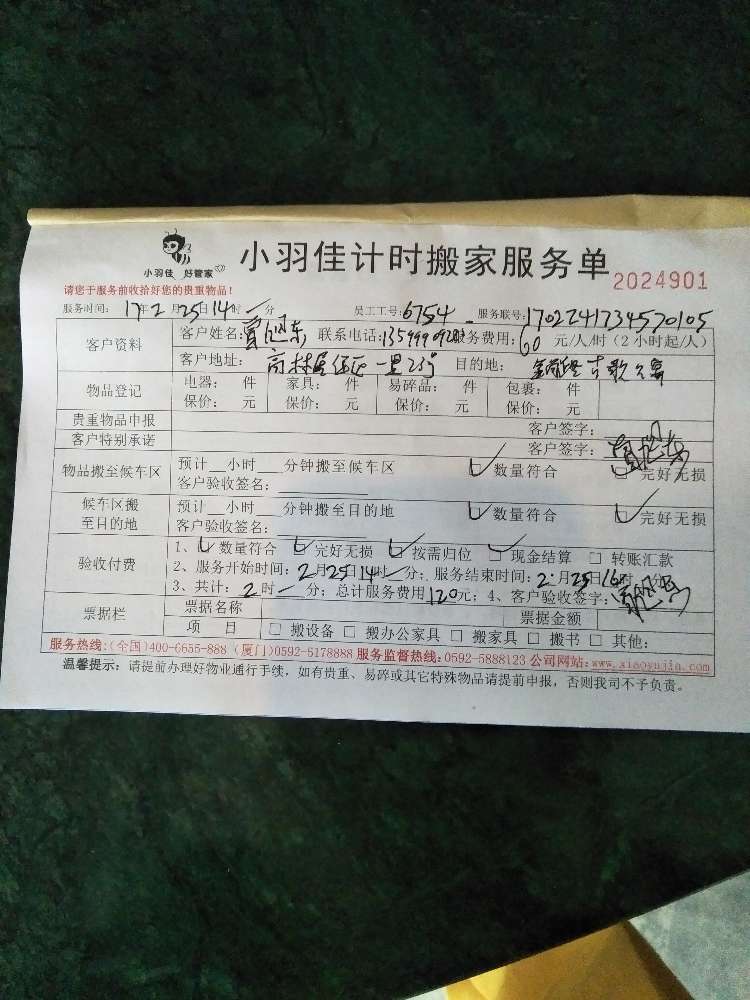 小羽佳 好管家
小羽佳计时搬家服务单 2024901
请您于服务前收拾好您的贵重物品!
服务时间: 17年2月25日14时一分 员工工号:6754 服务联号:1702241734570105
客户资料 客户姓名: 联系电话: 服务费用:60元/人/时(2小时起/人)
客户地址: 高林居住区一里23号 目的地:
物品登记 电器: 件 家具: 件 易碎品: 件 包裹: 件
保价: 元 保价: 元 保价: 元 保价: 元
贵重物品申报 客户签字:
客户特别承诺 客户签字:
物品搬至候车区 预计__小时__分钟搬至候车区 数量符合 完好无损
客户验收签名:
候车区搬至目的地 预计__小时__分钟搬至目的地 数量符合 完好无损
客户验收签名:
验收付费 1、数量符合 完好无损 按需归位 现金结算 转账汇款
2、服务开始时间:2月25日14时一分; 服务结束时间:2月25日16时 分;
3、共计:2时一分; 总计服务费用120元; 4、客户验收签字:
票据栏 票据名称 票据金额
项 目 搬设备 搬办公家具 搬家具 搬书 其他:
服务热线:(全国)400-6655-888 (厦门)0592-5178888 服务监督热线:0592-5888123 公司网站:www.xiaoyujia.com
温馨提示:请提前办理好物业通行手续,如有贵重、易碎或其它特殊物品请提前申报,否则我司不予负责。